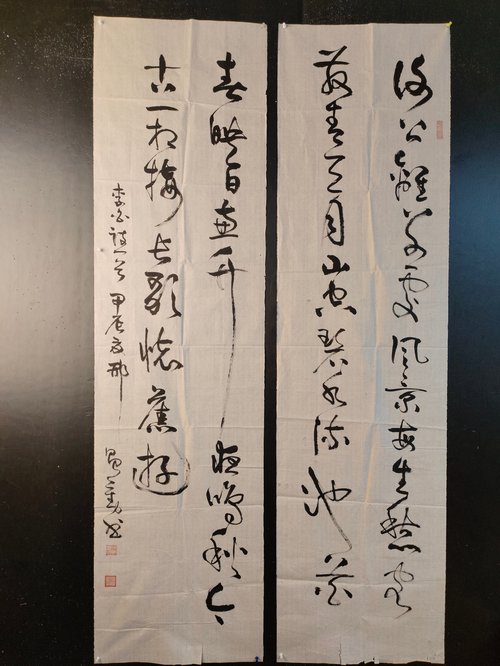 谢公離别处風景每生愁客
散青天月山空碧水流池花
春映日窗竹夜鳴秋今
古一相接長歌懷舊遊
李白詩一首 甲辰